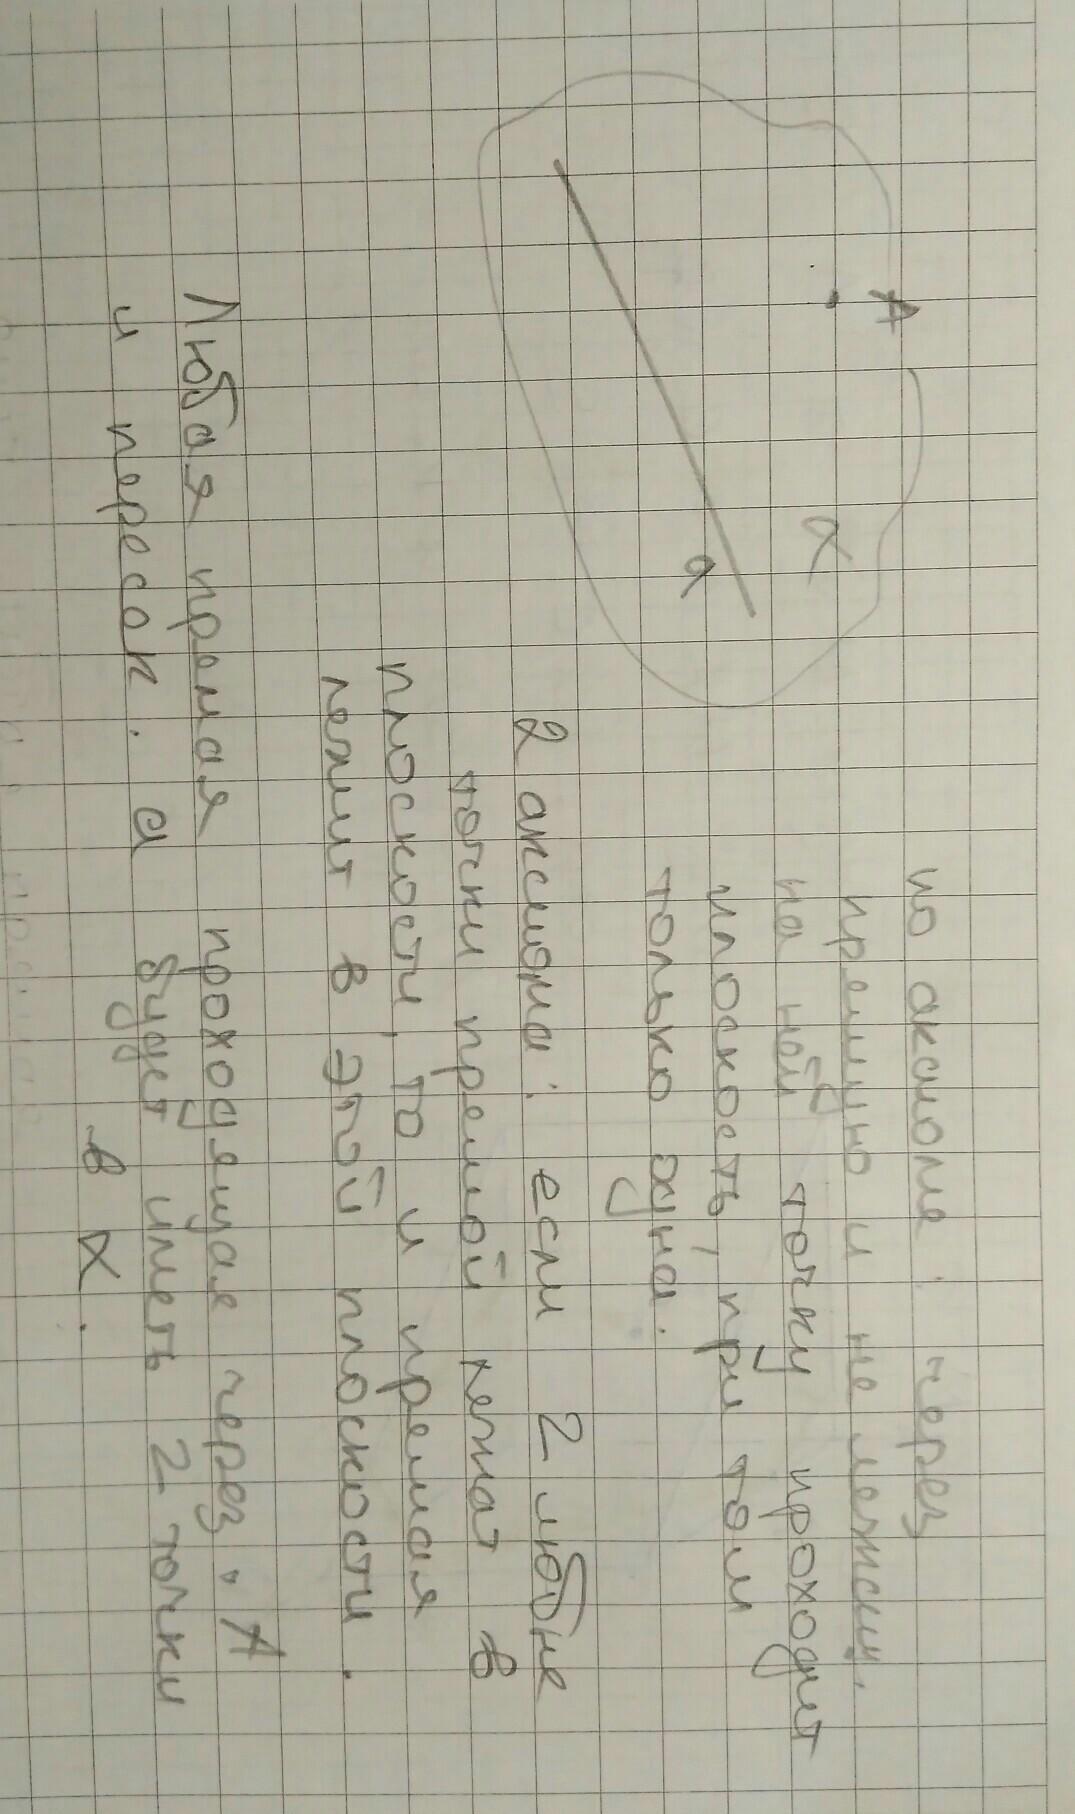 A
α
a
по аксиоме: через
прямую и не лежащ.
на ней точку проходит
плоскость, при том
только одна.
2 аксиома: если 2 любые
точки прямой лежат в
плоскости, то и прямая
лежит в этой плоскости.
Любая прямая проходящая через · A
и пересек. a будет иметь 2 точки
в α.